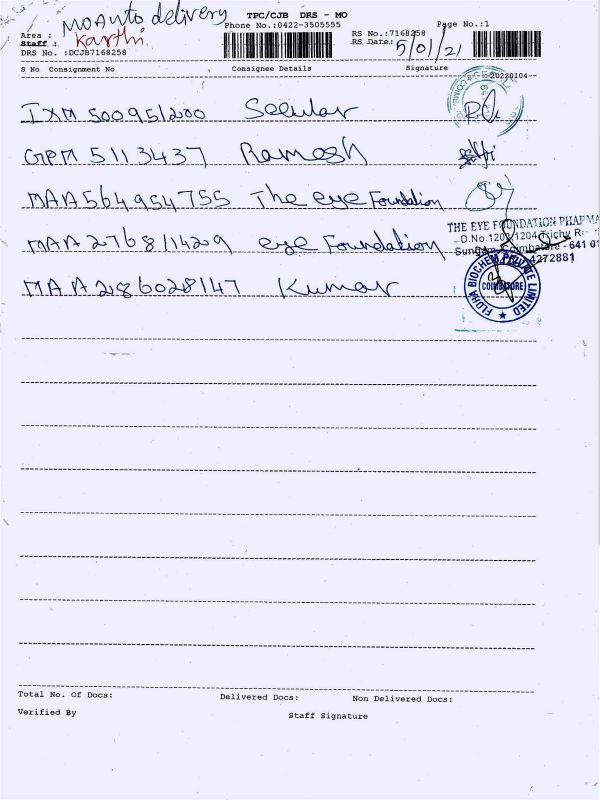 MOAuto delivery TPC/CJB DRS - MO
Phone No.:0422-3505555 Page No.:1
Area :
Staff : Karthi RS No.:7168258
DRS No. :DCJB7168258 RS Date: 5/01/21
S No Consignment No Consignee Details Signature
20220104--
IXM 500951200 Secular
GPM 5113437 Ramesh
MAA564954755 The eye Foundation
THE EYE FOUNDATION PHARMA
D.No.1202,1204,Trichy R
MAA276811429 eye Foundation
Sungam, Coimbatore - 641 0
4272881
MAA286028147 Kumar
FLORA BIOCHEM PRIVATE LIMITED
COIMBATORE
Total No. Of Docs: Delivered Docs: Non Delivered Docs:
Verified By Staff Signature